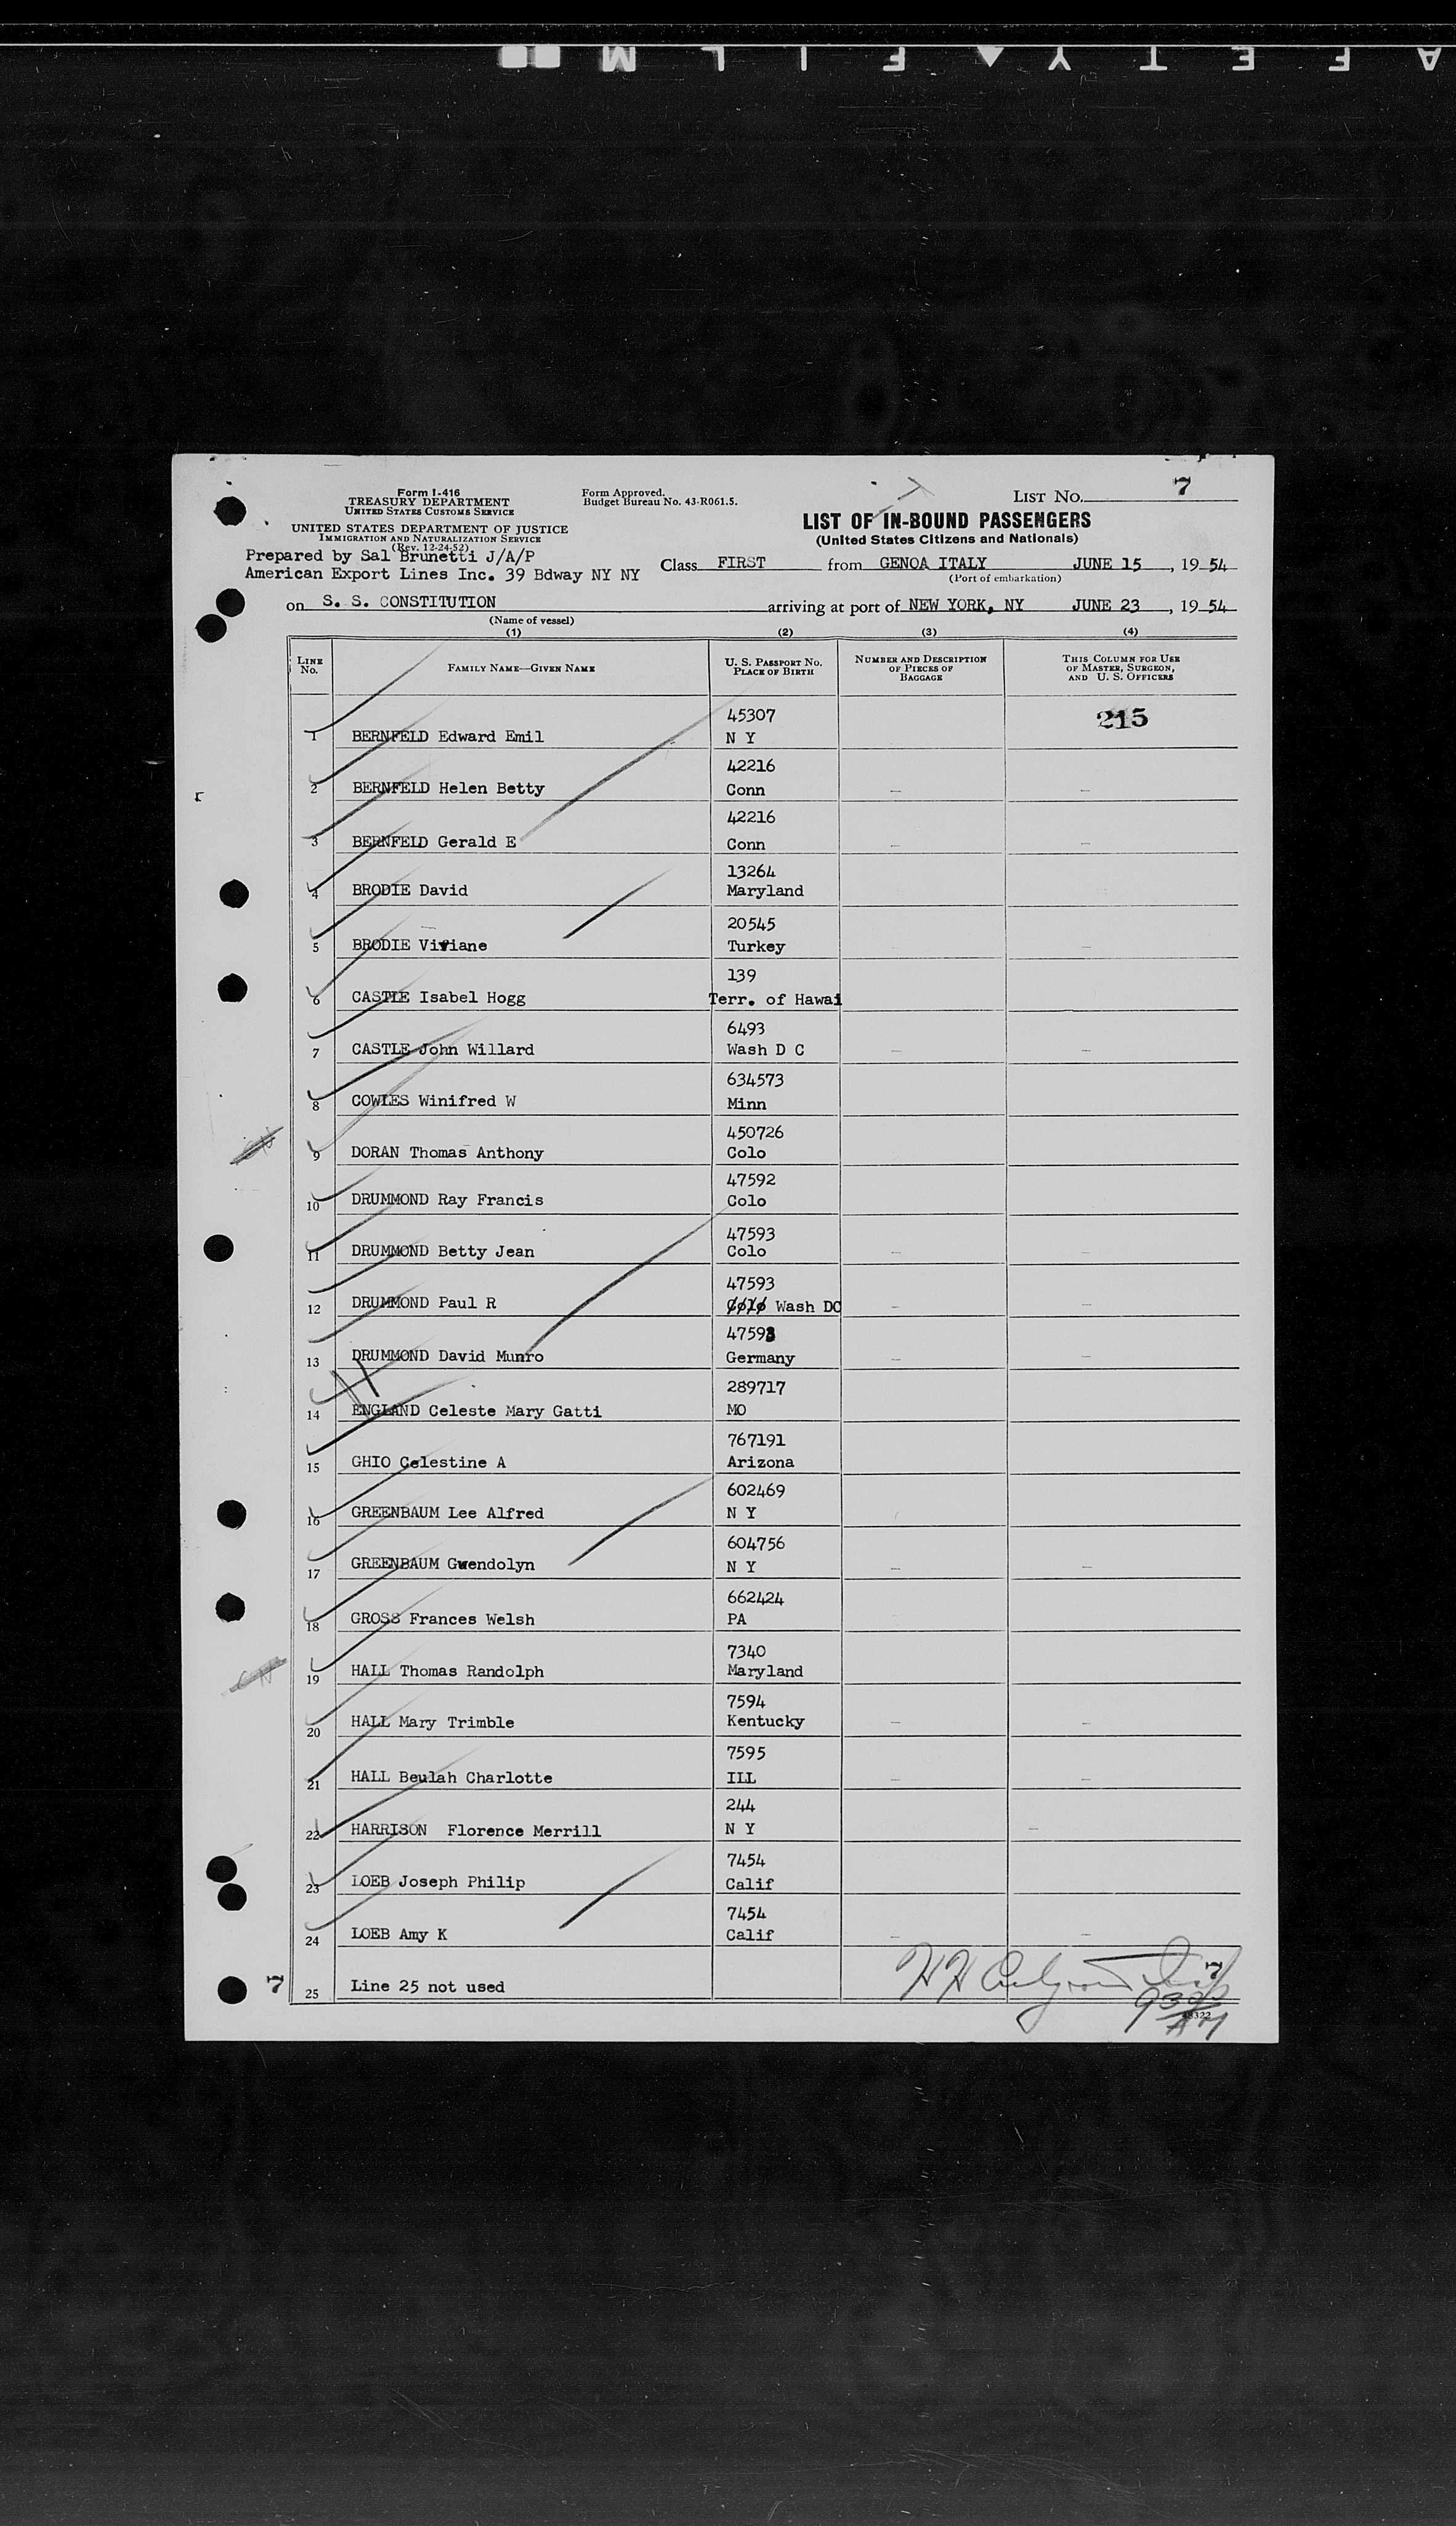 SAFETY FILM
Form I-416
TREASURY DEPARTMENT
UNITED STATES CUSTOMS SERVICE
UNITED STATES DEPARTMENT OF JUSTICE
IMMIGRATION AND NATURALIZATION SERVICE
(Rev. 12-24-52)
Form Approved.
Budget Bureau No. 43-R061.5.
LIST NO. 7
LIST OF IN-BOUND PASSENGERS
(United States Citizens and Nationals)
Prepared by Sal Brunetti J/A/P
American Export Lines Inc. 39 Bdway NY NY
Class FIRST from GENOA ITALY JUNE 15, 19 54
(Port of embarkation)
on S. S. CONSTITUTION arriving at port of NEW YORK, NY JUNE 23, 19 54
(Name of vessel)
(1) (2) (3) (4)
LINE NO. FAMILY NAME—GIVEN NAME U. S. PASSPORT NO. PLACE OF BIRTH NUMBER AND DESCRIPTION OF PIECES OF BAGGAGE THIS COLUMN FOR USE OF MASTER, SURGEON, AND U. S. OFFICERS
45307 215
1 BERNFELD Edward Emil N Y
42216
2 BERNFELD Helen Betty Conn — —
42216
3 BERNFELD Gerald E Conn — —
13264
4 BRODIE David Maryland
20545
5 BRODIE Viviane Turkey — —
139
6 CASTLE Isabel Hogg Terr. of Hawai
6493
7 CASTLE John Willard Wash D C — —
634573
8 COWLES Winifred W Minn
450726
9 DORAN Thomas Anthony Colo
47592
10 DRUMMOND Ray Francis Colo
47593
11 DRUMMOND Betty Jean Colo — —
47593
12 DRUMMOND Paul R Colo Wash DC — —
47593
13 DRUMMOND David Munro Germany — —
289717
14 ENGLAND Celeste Mary Gatti MO
767191
15 GHIO Celestine A Arizona
602469
16 GREENBAUM Lee Alfred N Y
604756
17 GREENBAUM Gwendolyn N Y — —
662424
18 GROSS Frances Welsh PA
7340
19 HALL Thomas Randolph Maryland
7594
20 HALL Mary Trimble Kentucky — —
7595
21 HALL Beulah Charlotte ILL — —
244
22 HARRISON Florence Merrill N Y —
7454
23 LOEB Joseph Philip Calif
7454
24 LOEB Amy K Calif — —
7 25 Line 25 not used 7